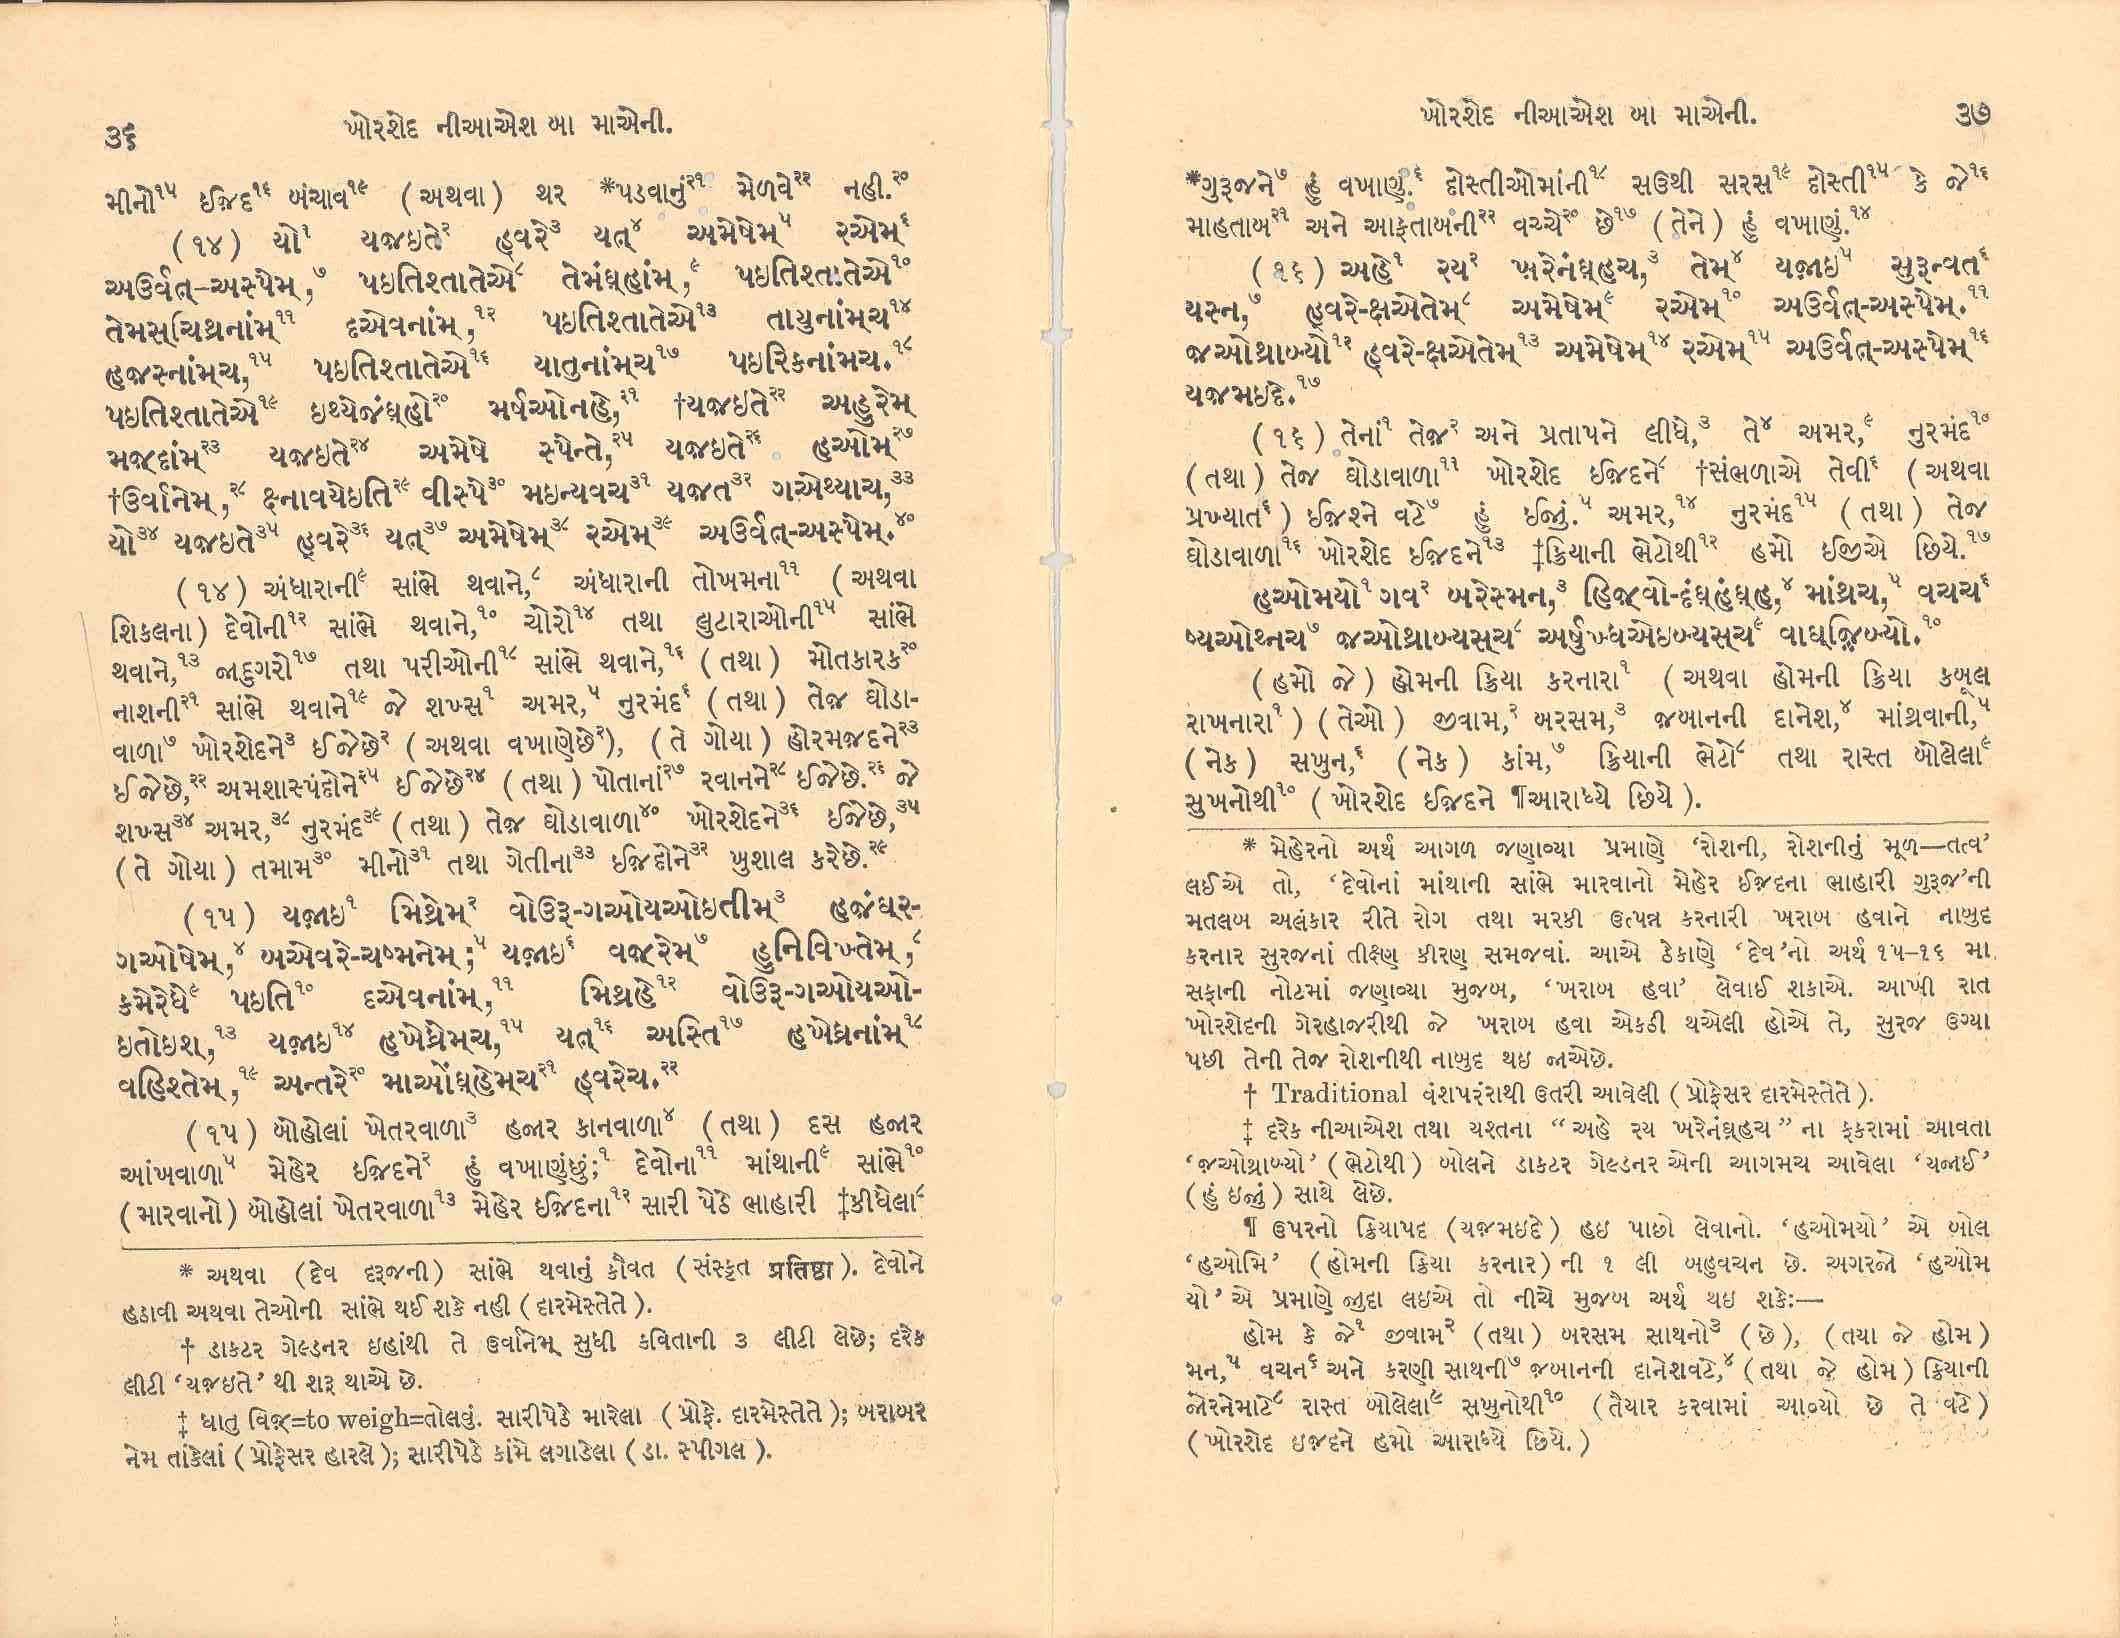 ૩૬
ખોરશેદ નીઆએશ બા માએની.
મીનો૧૫ ઈજ઼દ૧૬ બંચાવ૧૯ (અથવા) થર *પડવાનું૨૧ મેળવે૨૨ નહી.૨૦
(૧૪) યો૧ યજ઼ઇતે૨ હ્વરે૩ યત્૪ અમેષેમ્૫ રએમ્૬
અઉર્વત્-અસ્પેમ્,૭ પઇતિશ્તાતેએ૮ તેમંઘ્હાંમ્,૯ પઇતિશ્તાતેએ૧૦
તેમસ્ચિથ્રનાંમ્૧૧ દએવનાંમ્,૧૨ પઇતિશ્તાતેએ૧૩ તાયુનાંમ્ચ૧૪
હજ઼સ્નાંમ્ચ,૧૫ પઇતિશ્તાતેએ૧૬ યાતુનાંમ્ચ૧૭ પઇરિકનાંમચ.૧૮
પઇતિશ્તાતેએ૧૯ ઇથ્યેજંઘ્હો૨૦ મર્ષઓનહે,૨૧ †યજ઼ઇતે૨૨ અહુરેમ્
મજ઼્દાંમ્૨૩ યજ઼ઇતે૨૪ અમેષે સ્પેન્તે,૨૫ યજ઼ઇતે૨૬ હઓમ્૨૭
†ઉર્વાનેમ્,૨૮ ક્ષ્નાવયેઇતિ૨૯ વીસ્પે૩૦ મઇન્યવચ૩૧ યજ઼ત૩૨ ગએથ્યાચ,૩૩
યો૩૪ યજ઼ઇતે૩૫ હ્વરે૩૬ યત્૩૭ અમેષેમ્૩૮ રએમ્૩૯ અઉર્વત્-અસ્પેમ્.૪૦
(૧૪) અંધારાની૯ સાંભે થવાને,૮ અંધારાની તોખમના૧૧ (અથવા
શિકલના) દેવોની૧૨ સાંભે થવાને,૧૦ ચોરો૧૪ તથા લુટારાઓની૧૫ સાંભે
થવાને,૧૩ જાદુગરો૧૭ તથા પરીઓની૧૮ સાંભે થવાને,૧૬ (તથા) મોતકારક૨૦
નાશની૨૧ સાંભે થવાને૧૯ જે શખ્સ૧ અમર,૫ નુરમંદ૬ (તથા) તેજ ઘોડા-
વાળા૭ ખોરશેદને૩ ઈજેછે૨ (અથવા વખાણેછે૨), (તે ગોયા) હોરમજ઼દને૨૩
ઈજેછે,૨૨ અમશાસ્પંદોને૨૫ ઈજેછે૨૪ (તથા) પોતાનાં૨૭ રવાનને૨૮ ઈજેછે.૨૬ જે
શખ્સ૩૪ અમર,૩૮ નુરમંદ૩૯ (તથા) તેજ ઘોડાવાળા૪૦ ખોરશેદને૩૬ ઈજેછે,૩૫
(તે ગોયા) તમામ૩૦ મીનો૩૧ તથા ગેતીના૩૩ ઈજ઼દોને૩૨ ખુશાલ કરેછે.૨૯
(૧૫) યજ઼ાઇ૧ મિથ્રેમ્૨ વોઉરૂ-ગઓયઓઇતીમ્૩ હજ઼ંઘ્ર-
ગઓષેમ્,૪ બએવરે-ચષ્મનેમ્;૫ યજ઼ાઇ૬ વજ઼્રેમ્૭ હુનિવિખ્તેમ્,૮
કમેરેધે૯ પઇતિ૧૦ દએવનાંમ્,૧૧ મિથ્રહે૧૨ વોઉરૂ-ગઓયઓ-
ઇતોઇશ્,૧૩ યજ઼ાઇ૧૪ હખેધ્રેમ્ચ,૧૫ યત્૧૬ અસ્તિ૧૭ હખેધ્રનાંમ્૧૮
વહિશ્તેમ્,૧૯ અન્તરે૨૦ માઓંઘ્હેમ્ચ૨૧ હ્વરેચ.૨૨
(૧૫) બોહોલાં ખેતરવાળા૩ હજાર કાનવાળા૪ (તથા) દસ હજાર
આંખવાળા૫ મેહેર ઇજ઼દને૨ હું વખાણુંછું;૧ દેવોના૧૧ માંથાની૯ સાંભે૧૦
(મારવાનો) બોહોલાં ખેતરવાળા૧૩ મેહેર ઈજ઼દના૧૨ સારી પેઠે ભાહારી ‡કીધેલા૮
* અથવા (દેવ દરૂજની) સાંભે થવાનું કૌવત (સંસ્કૃત प्रतिष्ठा). દેવોને
હડાવી અથવા તેઓની સાંભે થઈ શકે નહી (દારમેસ્તેતે).
† ડાકટર ગેલ્ડનર ઇહાંથી તે ઉર્વાનેમ્ સુધી કવિતાની ૩ લીટી લેછે; દરેક
લીટી ‘યજ઼ઇતે’ થી શરૂ થાએ છે.
‡ ધાતુ વિજ઼=to weigh=તોલવું. સારીપેઠે મારેલા (પ્રોફે. દારમેસ્તેતે); બરાબર
નેમ તાંકેલાં (પ્રોફેસર હારલે); સારીપેઠે કાંમે લગાડેલા (ડા. સ્પીગલ).
ખોરશેદ નીઆએશ બા માએની.
૩૭
*ગુરૂજને૭ હું વખાણું.૬ દોસ્તીઓમાંની૧૮ સઉથી સરસ૧૯ દોસ્તી૧૫ કે જે૧૬
માહતાબ૨૧ અને આફતાબની૨૨ વચ્ચે૨૦ છે૧૭ (તેને) હું વખાણું.૧૪
(૧૬) અહે૧ રય૨ ખરેનંઘ્હચ,૩ તેમ્૪ યજ઼ાઇ૫ સુરૂન્વત૬
યસ્ન,૭ હ્વરે-ક્ષએતેમ્૮ અમેષેમ્૯ રએમ્૧૦ અઉર્વત્-અસ્પેમ્.૧૧
જ઼ઓથ્રાબ્યો૧૨ હ્વરે-ક્ષએતેમ્૧૩ અમેષેમ્૧૪ રએમ્૧૫ અઉર્વત્-અસ્પેમ્૧૬
યજ઼મઇદે.૧૭
(૧૬) તેનાં૧ તેજ૨ અને પ્રતાપને લીધે,૩ તે૪ અમર,૯ નુરમંદ૧૦
(તથા) તેજ ઘોડાવાળા૧૧ ખોરશેદ ઈજ઼દને૮ †સંભળાએ તેવી૬ (અથવા
પ્રખ્યાત૬) ઈજ઼શ્ને વટે૭ હું ઈજું.૫ અમર,૧૪ નુરમંદ૧૫ (તથા) તેજ
ઘોડાવાળા૧૬ ખોરશેદ ઈજ઼દને૧૩ ‡ક્રિયાની ભેટોથી૧૨ હમો ઈજીએ છિયે.૧૭
હઓમયો૧ ગવ૨ બરેસ્મન,૩ હિજ઼્વો-દંઘ્હંઘ્હ,૪ માંથ્રચ,૫ વચચ૬
ષ્યઓથ્નચ૭ જ઼ઓથ્રાબ્યસ્ચ૮ અર્ષુખ્ધએઇબ્યસ્ચ૯ વાઘ્જ઼િબ્યો.૧૦
(હમો જે) હોમની ક્રિયા કરનારા૧ (અથવા હોમની ક્રિયા કબૂલ
રાખનારા૧) (તેઓ) જીવામ,૨ બરસમ,૩ જ઼બાનની દાનેશ,૪ માંથ્રવાની,૫
(નેક) સખુન,૬ (નેક) કાંમ,૭ ક્રિયાની ભેટો૮ તથા રાસ્ત બોલેલા૯
સુખનોથી૧૦ (ખોરશેદ ઈજ઼દને ¶આરાધ્યે છિયે).
* મેહેરનો અર્થ આગળ જણાવ્યા પ્રમાણે ‘રોશની, રોશનીનું મૂળ—તત્વ’
લઈએ તો, ‘દેવોનાં માંથાની સાંભે મારવાનો મેહેર ઈજ઼દના ભાહારી ગુરૂજ’ની
મતલબ અલંકાર રીતે રોગ તથા મરકી ઉત્પન્ન કરનારી ખરાબ હવાને નાબુદ
કરનાર સુરજનાં તીક્ષ્ણ કીરણ સમજવાં. આએ ઠેકાણે ‘દેવ’નો અર્થ ૧૫-૧૬ મા
સફાની નોટમાં જણાવ્યા મુજબ, ‘ખરાબ હવા’ લેવાઈ શકાએ. આખી રાત
ખોરશેદની ગેરહાજરીથી જે ખરાબ હવા એકઠી થએલી હોએ તે, સુરજ ઉગ્યા
પછી તેની તેજ રોશનીથી નાબુદ થઇ જાએછે.
† Traditional વંશપરંરાથી ઉતરી આવેલી (પ્રોફેસર દારમેસ્તેતે).
‡ દરેક નીઆએશ તથા યશ્તના “અહે રય ખરેનંઘ્હચ” ના ફકરામાં આવતા
‘જ઼ઓથ્રાબ્યો’ (ભેટોથી) બોલને ડાકટર ગેલ્ડનર એની આગમચ આવેલા ‘યજ઼ાઈ’
(હું ઇજું) સાથે લેછે.
¶ ઉપરનો ક્રિયાપદ (યજ઼મઇદે) હઇ પાછો લેવાનો. ‘હઓમયો’ એ બોલ
‘હઓમિ’ (હોમની ક્રિયા કરનાર) ની ૧ લી બહુવચન છે. અગરજો ‘હઓમ
યો’ એ પ્રમાણે જીદા લઇએ તો નીચે મુજબ અર્થ થઇ શકે:—
હોમ કે જે૧ જીવામ૨ (તથા) બરસમ સાથનો૩ (છે), (તયા જે હોમ)
મન,૫ વચન૬ અને કરણી સાથની૭ જ઼બાનની દાનેશવટે,૪ (તથા જે હોમ) ક્રિયાની
જોરનેમાટે૮ રાસ્ત બોલેલા૯ સખુનોથી૧૦ (તૈયાર કરવામાં આવ્યો છે તે વટે)
(ખોરશેદ ઇજ઼દને હમો આરાધ્યે છિયે.)